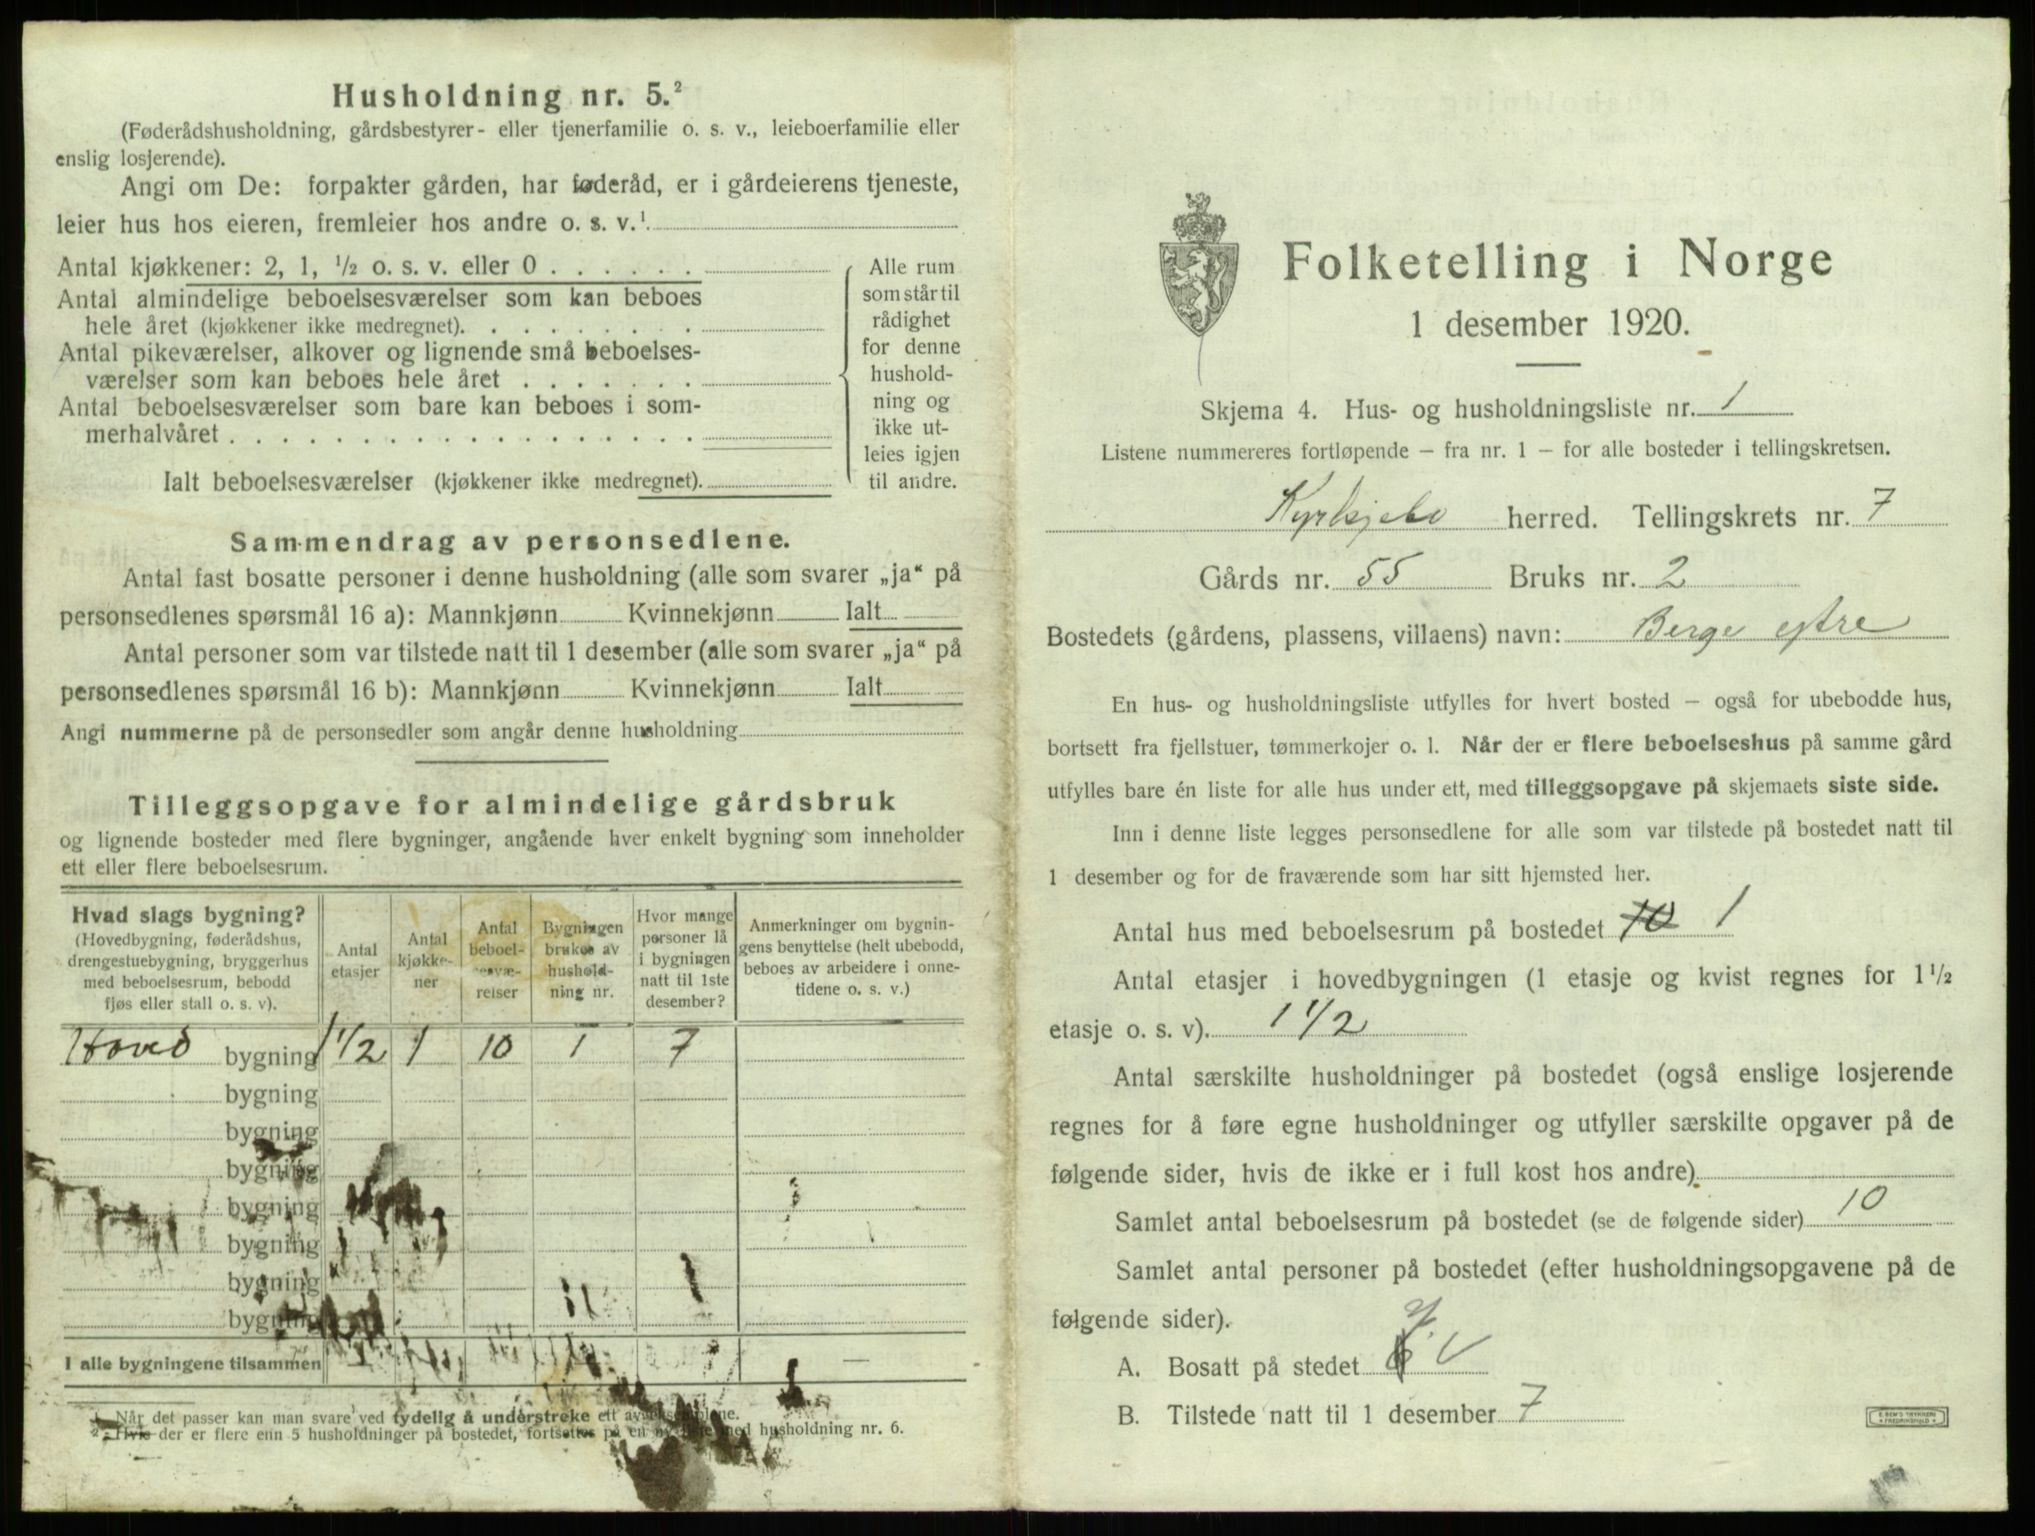 Husholdning nr. 5.²
(Føderådshusholdning, gårdsbestyrer- eller tjenerfamilie o. s. v., leieboerfamilie eller
enslig losjerende).
Angi om De: forpakter gården, har føderåd, er i gårdeierens tjeneste,
leier hus hos eieren, fremleier hos andre o. s. v.¹
Antal kjøkkener: 2, 1, ½ o. s. v. eller 0 . . . . . .
Antal almindelige beboelsesværelser som kan beboes
hele året (kjøkkener ikke medregnet). . . . . . . . .
Antal pikeværelser, alkover og lignende små beboelses-
værelser som kan beboes hele året . . . . . . .
Antal beboelsesværelser som bare kan beboes i som-
merhalvåret . . . . . . . . . . . . . . . . . .
Ialt beboelsesværelser (kjøkkener ikke medregnet).
Alle rum
som står til
rådighet
for denne
hushold-
ning og
ikke ut-
leies igjen
til andre.
Sammendrag av personsedlene.
Antal fast bosatte personer i denne husholdning (alle som svarer „ja“ på
personsedlenes spørsmål 16 a): Mannkjønn Kvinnekjønn Ialt
Antal personer som var tilstede natt til 1 desember (alle som svarer „ja“ på
personsedlenes spørsmål 16 b): Mannkjønn Kvinnekjønn Ialt
Angi nummerne på de personsedler som angår denne husholdning
Tilleggsopgave for almindelige gårdsbruk
og lignende bosteder med flere bygninger, angående hver enkelt bygning som inneholder
ett eller flere beboelsesrum.
Hvad slags bygning?
(Hovedbygning, føderådshus,
drengestuebygning, bryggerhus
med beboelsesrum, bebodd
fjøs eller stall o. s. v).
Antal
etasjer
Antal
kjøkke-
ner
Antal
beboel-
sesvæ-
relser
Bygningen
brukes av
hushold-
ning nr.
Hvor mange
personer lå
i bygningen
natt til 1ste
desember?
Anmerkninger om bygnin-
gens benyttelse (helt ubebodd,
beboes av arbeidere i onne-
tidene o. s. v.)
Hoved bygning 1 1/2 1 10 1 7
bygning
bygning
bygning
bygning
bygning
bygning
bygning
I alle bygningene tilsammen — —
¹ Når det passer kan man svare ved tydelig å understreke ett av eksemplene.
² Hvis der er flere enn 5 husholdninger på bostedet, fortsettes på en ny liste med husholdning nr. 6.
Folketelling i Norge
1 desember 1920.
Skjema 4. Hus- og husholdningsliste nr. 1
Listene nummereres fortløpende – fra nr. 1 – for alle bosteder i tellingskretsen.
Kyrkjebø herred. Tellingskrets nr. 7
Gårds nr. 55 Bruks nr. 2
Bostedets (gårdens, plassens, villaens) navn: Berge ytre
En hus- og husholdningsliste utfylles for hvert bosted – også for ubebodde hus,
bortsett fra fjellstuer, tømmerkojer o. l. Når der er flere beboelseshus på samme gård
utfylles bare én liste for alle hus under ett, med tilleggsopgave på skjemaets siste side.
Inn i denne liste legges personsedlene for alle som var tilstede på bostedet natt til
1 desember og for de fraværende som har sitt hjemsted her.
Antal hus med beboelsesrum på bostedet 10 1
Antal etasjer i hovedbygningen (1 etasje og kvist regnes for 1 ½
etasje o. s. v). 1 1/2
Antal særskilte husholdninger på bostedet (også enslige losjerende
regnes for å føre egne husholdninger og utfyller særskilte opgaver på de
følgende sider, hvis de ikke er i full kost hos andre)
Samlet antal beboelsesrum på bostedet (se de følgende sider) 10
Samlet antal personer på bostedet (efter husholdningsopgavene på de
følgende sider).
A. Bosatt på stedet 7.
B. Tilstede natt til 1 desember 7